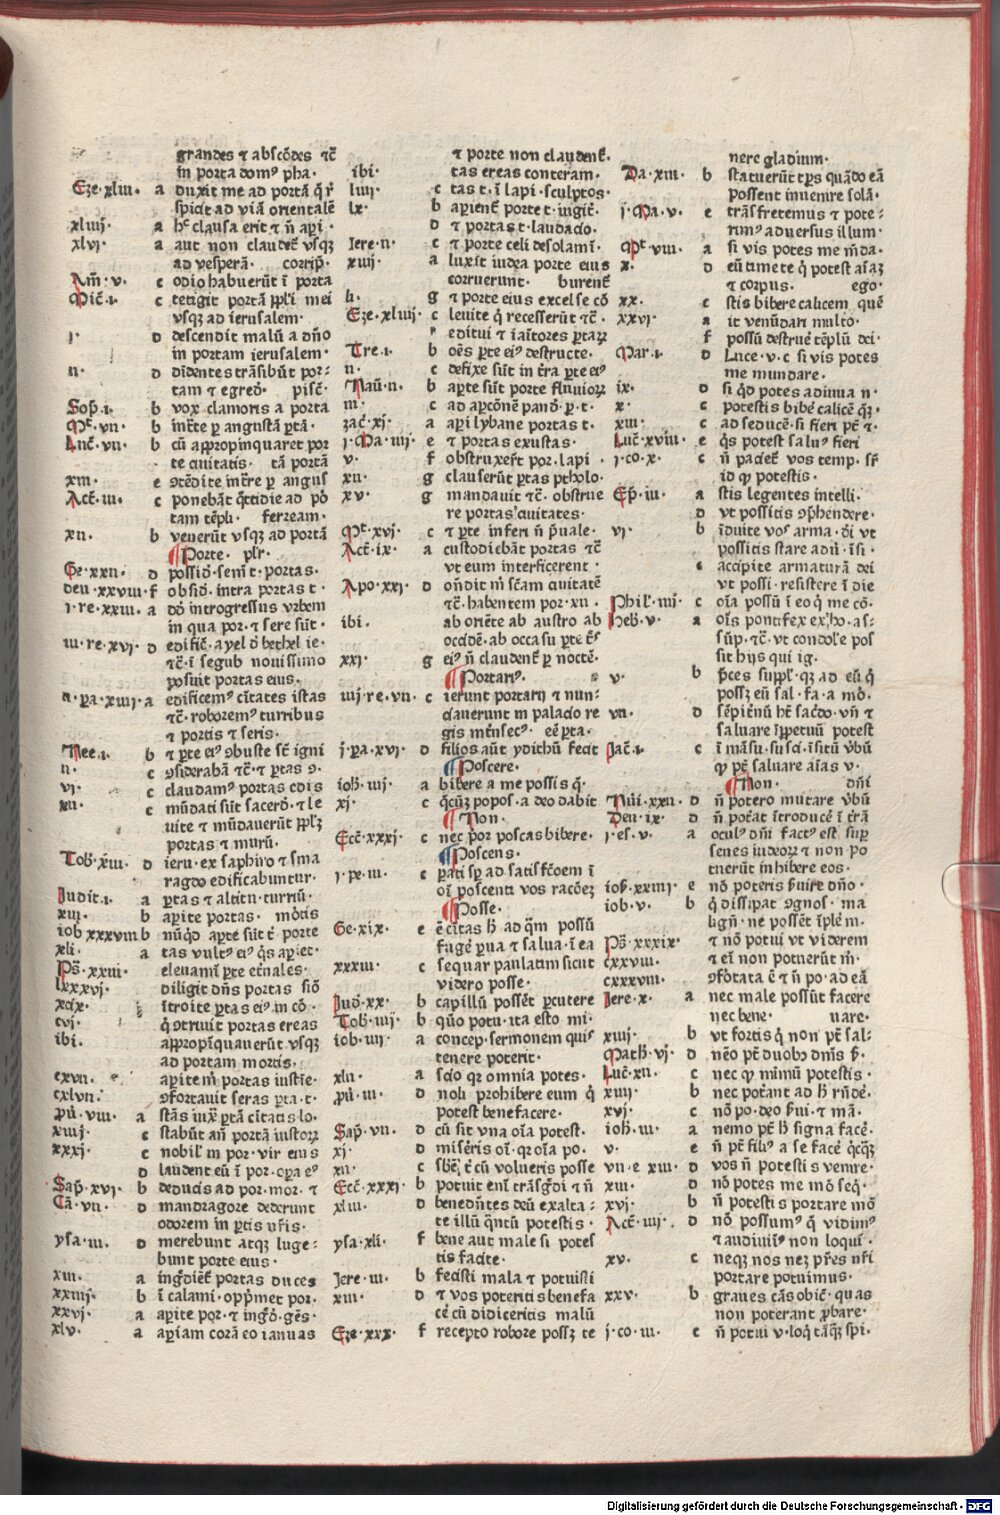 grandes ⁊ abscōdes ⁊c̄
in porta domꝰ pha·
Eze·xliii· a duxit me ad portā q̄ r̄
spicit ad viā orientalē
xliiij· a hec clausa erit ⁊ n̄ apı̄·
xlvj· a aut non claudet̄ vsqꝫ
ad vesperā· corrip̄·
Am̄·v· c odio habuerūt ī porta
Mic̄·i· c tetigit portā pp̄lı̄ mei
vsqꝫ ad ierusalem·
ı· d descendit malū a dn̄o
in portam ierusalem·
ıı· d diḋentes trāsibūt por-
tam ⁊ egred̄· pisc̄·
Sop̄·i· b vox clamoris a porta
Mt̄·vii· b intr̄te ꝑ angustā ꝑtā·
Luc̄·vii· b cū appropinquaret por
te ciuitatis· tā portā
xiii· e ꝯtēdite intr̄re ꝑ angus
Act̄·iii· c ponebāt q̄ttidie ad po
tam tēplı̄· ferream·
xii· b venerūt vsqꝫ ad portā
¶Porte· pl̄r·
Ge·xxii· d possid̄·semē t·portas·
deu·xxviii·f obsid̄·intra portas t·
ı·re·xxiii·a dō introgressus vrbem
in qua por·⁊ sere sūt·
iii·re·xvi·d edific̄·ayel d̄ bethel ie·
⁊c̄·ī segub nouissimo
posuit portas eius·
ii·pa·xiiij·a edificemꝰ ciuitates istas
⁊c̄·roboremꝰ turribus
⁊ portis ⁊ seris·
Nee·i· b ⁊ ꝑte eiꝰ ꝯbuste st̄ igni
ii· c ꝯsiderabā ⁊c̄·⁊ ꝑtas ꝯ·
vı· c claudamꝰ portas ⁊dis
xii· c mūdati sūt sacerd̄·⁊ le
uite ⁊ mūdauerūt pp̄lꝫ
portas ⁊ murū·
Tob·xiii· d ieru·ex saphiro ⁊ sma
ragdo edificabuntur·
Judit·i· a ꝑtas ⁊ altitu·turriū·
xiii· b apite portas· mōtis
iob xxxviii b nūqd̄ apte sūt t̄ porte
xli· a tas vultꝰ eiꝰ q̄s apiet·
Ps̄·xxiii· eleuamı̄ ꝑte et̄nales·
lxxxvj· diligit dn̄s portas siō
xcix· ītroite ꝑtas eiꝰ in cō·
cvj· q̄ ꝯtriuit portas ereas
ibi· appropı̄quauerūt vsqꝫ
ad portam mortis·
cxvii· apite m̄ portas iustic̄·
cxlvii· ꝯfortauit seras ꝑta·t·
pū·viii· a stās iuxͣ ꝑtā ciuitatis lo·
xiiij· c stabūt an̄ portā iustoꝝ
xxxj· c nobil̓ in por·vir eius
d laudent eū ī por·oꝑa eꝰ
Sap̄·xvj· b deducis ad por·mor·⁊
Cā·vii· d mandragore dederunt
odorem in ꝑtis nr̄is·
ysa·iii· d merebunt atqꝫ luge-
bunt porte eius·
xiii· a ing̓diēt̄ portas duces
xxiiij· b ī calamı̄·opp̄met por·
xxvj· a apite por·⁊ ing̓d̄·gēs·
xlv· a apiam corā eo ianuas
⁊ porte non claudent̄·
ibi· tas ereas conteram·
liiij· c tas t·ī lapi·sculptos·
lx· b apient̄ porte t·iugit̄·
d ⁊ portas t·laudacō·
Jere·ii· c ⁊ porte celi desolamı̄·
xiiij· a luxit iudea porte eius
corruerunt· burent̄
li· g ⁊ porte eius excelse cō
Eze·xliiij· c leuite q̄ recesserūt ⁊c̄·
editui ⁊ iaītores ꝑtaꝝ
Tre·i· b oēs ꝑte eiꝰ destructe·
ıı· c defixe sūt in tr̄a ꝑte eiꝰ
Naū·ii· b apte sūt porte fluuioꝝ
iii· c ad apcōnē pand̄·ꝑ·t·
zac̄·xj· a apı̄ lybane portas t·
ı·Ma·iiij· e ⁊ portas exustas·
v· f obstruxer̄t por·lapi·
xii· g clauserūt ꝑtas ptholo·
xv· g mandauit ⁊c̄·obstrue
re portas ciuitates·
Mt̄·xvj· c ⁊ ꝑte inferi n̄ p̄uale·
Act̄·ix· a custodiebāt portas ⁊c̄
vt eum interficerent·
Apo·xxj· d on̄dit m̄ sc̄am ciuitatē
⁊c̄·habentem por·xii·
ibi· ab oriēte ab austro ab
occidē·ab occasu ꝑte t̄s
xxj· g eiꝰ n̄ claudent̄ ꝑ noctē·
¶Portariꝰ·
iiij·re·vii· c ierunt portarij ⁊ nun-
ciauerunt in palacio re
gis int̄nsecꝰ· eē ꝑta·
j·pa·xvj· d filios aūt ydithū fecit
¶Poscere·
ioh·iiij· a bibere a me poscis q̄·
xj· c q̄cūqꝫ popos·a deo dabit
¶Non·
Ecc̄·xxxj· c nec p̄or poscas bibere·
¶Poscens·
ı·pe·iii· c ꝑati sp̄ ad satisfc̄oem ī
oı̄ poscenti vos racōeꝫ
¶Posse·
Ge·xix· e ē ciuitas h̄ ad qm̄ possū
fugē ꝑua ⁊ salua·ī ea
xxxiii· c sequar paulatim sicut
videro posse·
Jud̄·xx· b capillū possēt ꝑcutere
Tob·iiij· b quō potu·ita esto mi·
iob·iiij· a concep·sermonem quis
tenere poterit·
xlii· a scio qꝛ omnia potes·
pū·iii· d noli prohibere eum q̄
potest benefacere·
Sap̄·vii· d cū sit vna oı̄a potest·
xj· d miserı̄s oı̄·qꝛ oı̄a po·
xii· c sb̄ēt t̄ cū volueris posse
Ecc̄·xxxj· b potuit enı̄ trāsg̓di ⁊ n̄
xliii· d benedn̄tes deū exalta-
te illū q̄ntū potestis·
ysa·xli· f bene aut male si potes
tis facite·
Jere·iii· b fecisti mala ⁊ potuisti
xiii· d ⁊ vos poteritis benefa
cē cū didiceritis malū
Eze·xxx· f recepto robore possꝫ te
nere gladium·
Da·xiii· b statuerūt tp̄s quādo eā
possent inuenire solā·
j·Ma·v· e trāsfretemus ⁊ pote-
rimꝰ aduersus illum·
Mt̄·viii· a si vis potes me mūda·
x· d eū timete q̄ potest aı̄aꝫ
⁊ corpus· ego·
xx· c stis bibere calicem quē
xxvj· a it venūdari multo·
f possū destruē tēplū dei·
Mar·i· d Luce·v·c si vis potes
me mundare·
ix· d si qd̄ potes adiuua n·
x· c potestis bibē calicē q̄ꝫ·
xiii· c ad seducē·si fieri pt̄ ⁊·
Luc̄·xviii· e q̄s potest saluꝰ fieri
j·co·x· c n̄ paciet̄ vos temp·sr̄
id qd̄ potestis·
Ep̄·iii· a stis legentes intelli·
d vt possitis ꝯp̄hendere·
vj· b īduite vos arma·dı̄ vt
possitis stare adū·īsi·
c accipite armaturā dei
vt possi·resistere ī die
Phil̓·iiij· c oı̄a possū ī eo q̄ me cō·
Heb̄·v· a oı̄s pontifex ex hō·as-
sūp·⁊c̄·vt condole pos
sit hijs qui ig·
v· b p̄ces suppl̓·qꝫ ad eū q̄
possꝫ eū sal·fa·a mō·
vii· d sēpitnū ht̄ sac̄do·vn̄ ⁊
saluare ı̄ppetuū potest
Jac̄·i· c ī māsu·suscı̄·īsitū v̄bū
qd̄ pt̄ saluare aı̄as v·
¶Non· dn̄i
Nūi·xxii· d n̄ potero mutare v̄bū
Deu·ix· d n̄ pot̄at ītroducē ī tr̄ā
j·es·v· a oculꝰ dn̄i factꝰ est suꝑ
senes iudeoꝝ ⁊ non po
tuerūt inhibere eos·
iob·xxiiij· e nō poteris ẜuire dn̄o·
iob·v· b q̄ dissipat ꝯgnos·ma
lign̄·ne possēt īplē m·
Ps̄·xxxix· ⁊ nō potui vt viderem
cxxviii· ⁊ eı̄ non potuerūt m̄·
cxxxviii· ꝯfōtata ē ⁊ n̄ po·ad eā
Jere·x· a nec male possūt facere
nec bene· uare·
xiiij· b vt fortis q̄ non pt̄ sal-
Math̄·vj· d nēo pt̄ duobꝫ dn̄is ẜ·
Luc̄·xii· c nec qd̄ minimū potestis·
xiiij· b nec pot̄ant ad h̄ rn̄dē·
xvj· c nō po·deo ẜui·⁊ mā·
ioh̄·iii· a nemo pt̄ h̄ signa facē·
v· e n̄ pt̄ filiꝰ a se facē q̄cq̄ꝫ
vii·e xiii· d vos n̄ potestis venire·
xiii· d nō potes me mō seq̄·
xvj· b n̄ potestis portare mō
Act̄·iiij· d nō possumꝰ q̄ vidimꝰ
⁊ audiuimꝰ non loqui·
xv· c neqꝫ nos neqꝫ pr̄es nr̄i
portare potuimus·
xxv· b graues cās obic̄·quas
non poterant ꝓbare·
j·co·iii· c n̄ potui v·loq̄ tāq̄ꝫ spı̄·
Digitalisierung gefördert durch die Deutsche Forschungsgemeinschaft · DFG